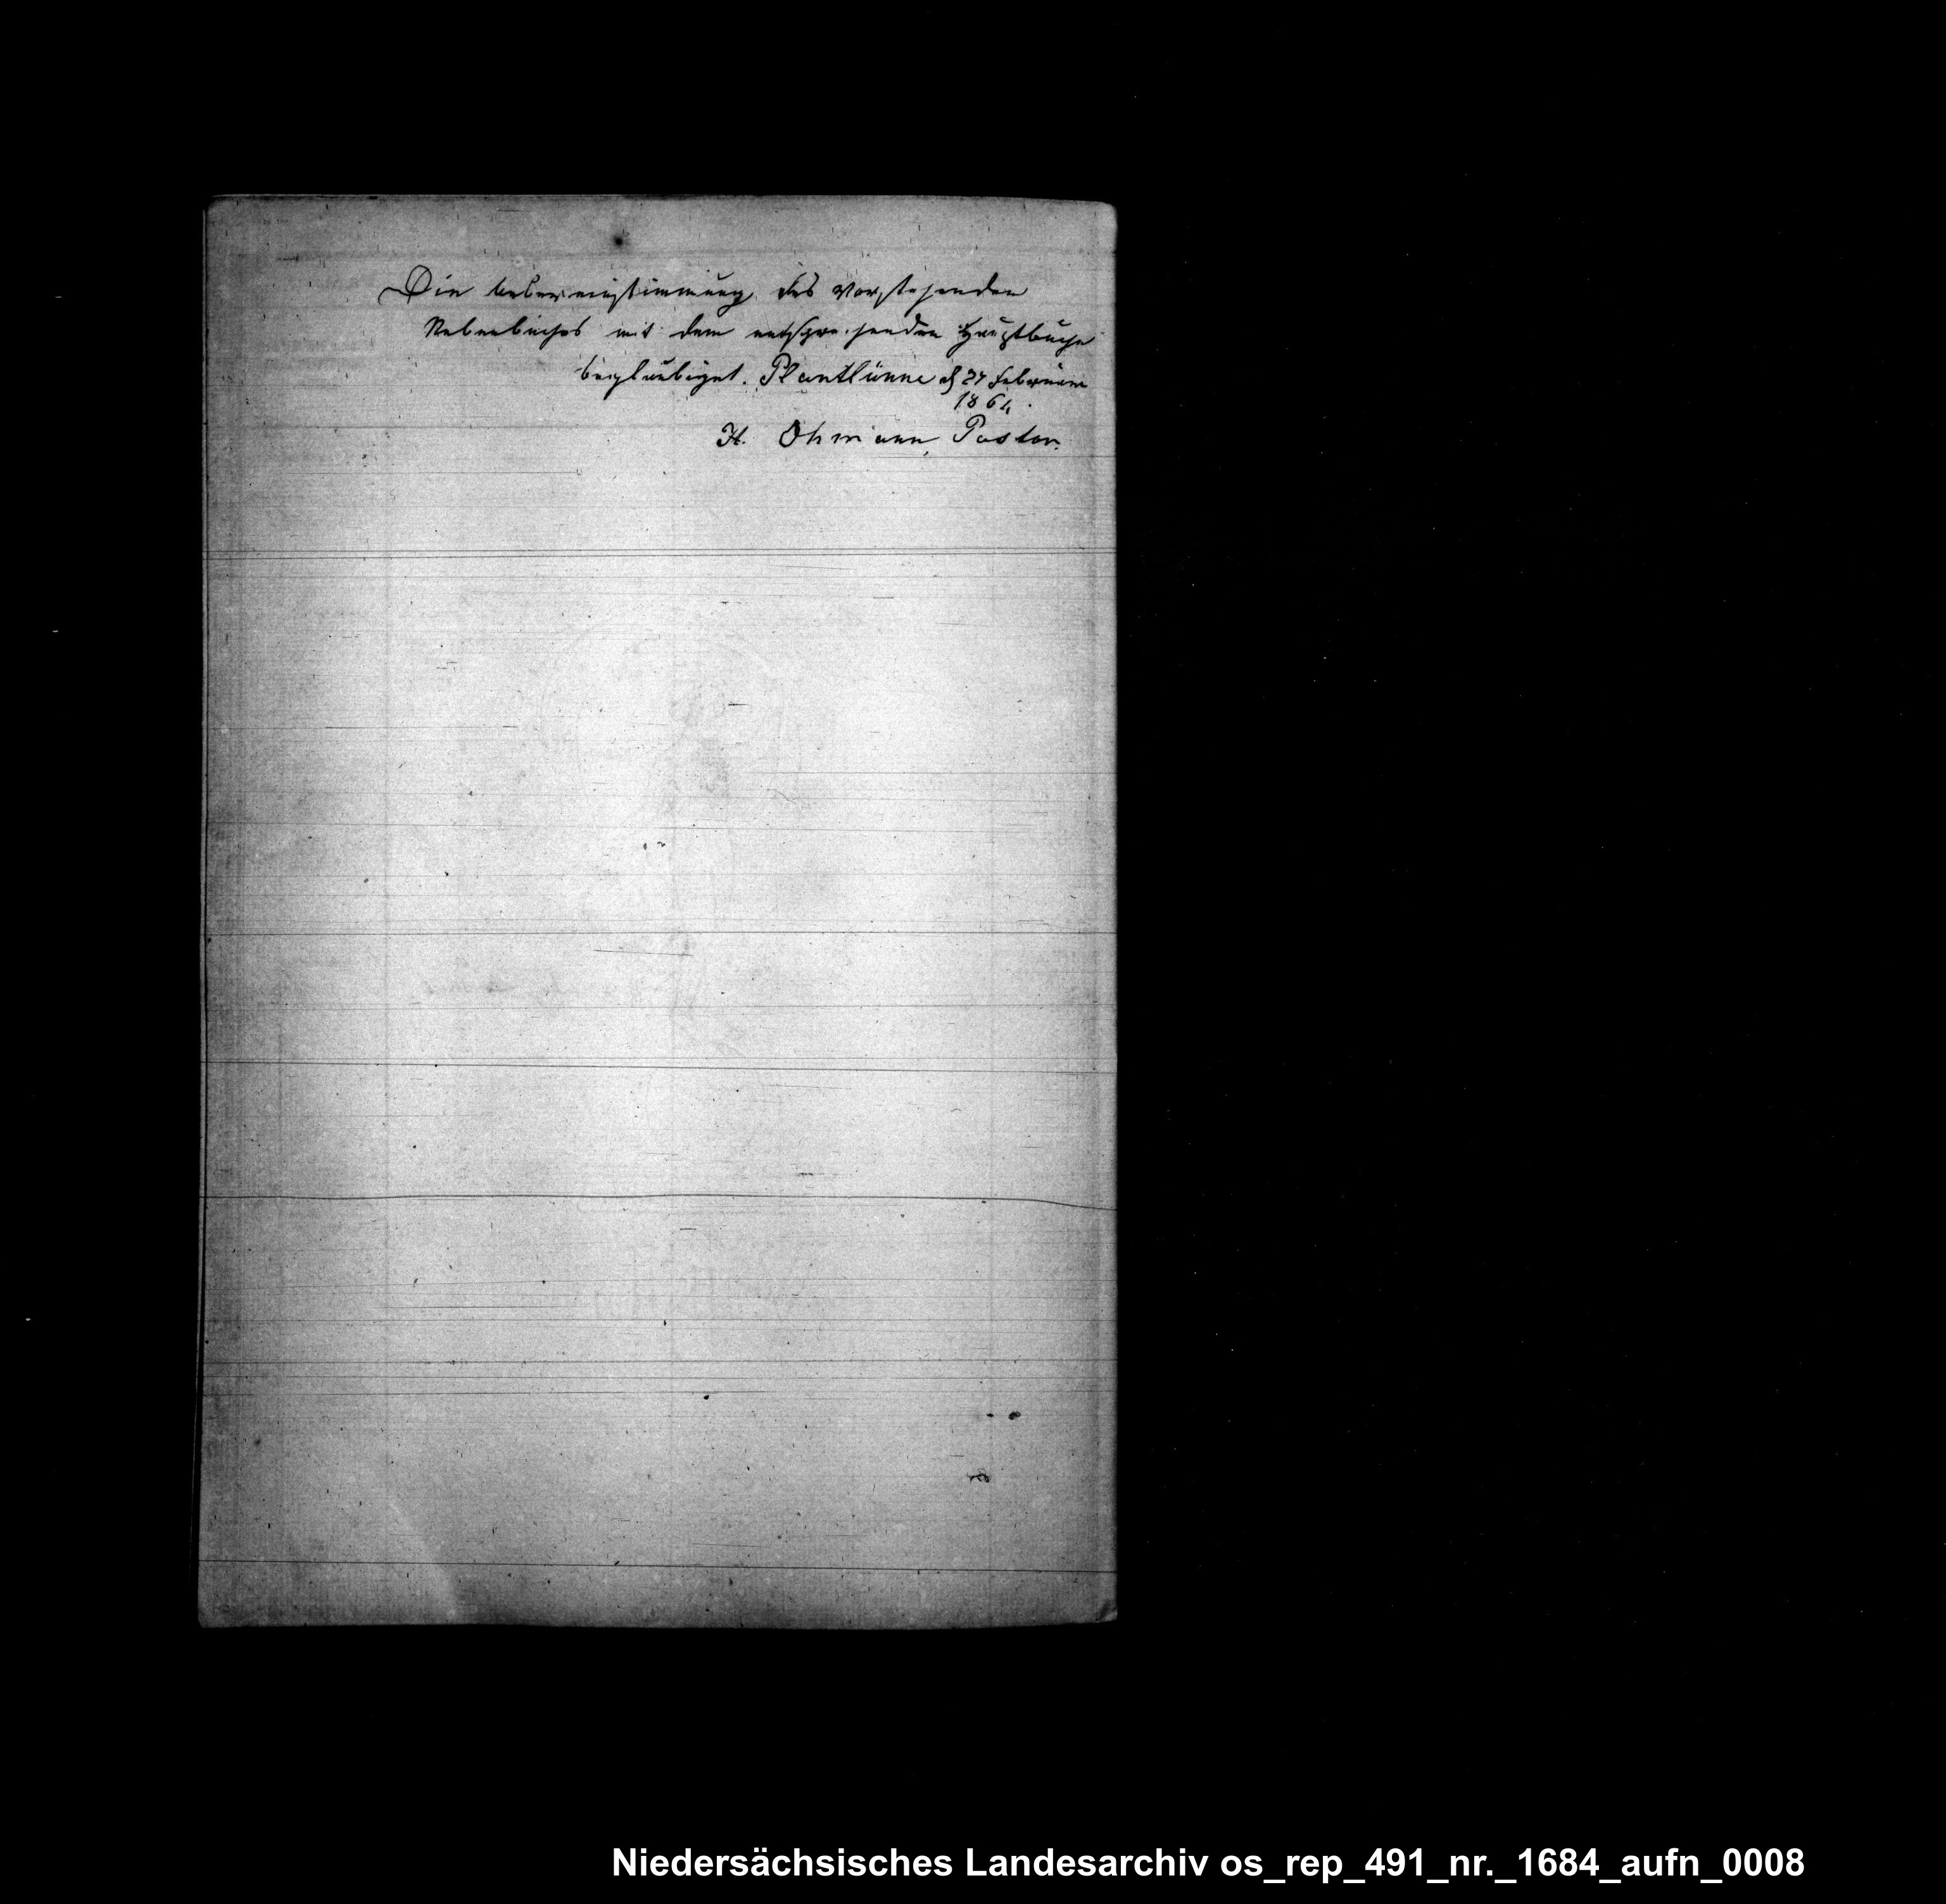 Die Uebereinstimmung des vorstehenden
Nebenbuches mit dem entsprechenden Hauptbuche
beglaubiget. Plantlünne d 27 Februar
1864.
H. Ohmann, Pastor.
Niedersächsisches Landesarchiv os_rep_491_nr._1684_aufn_0008